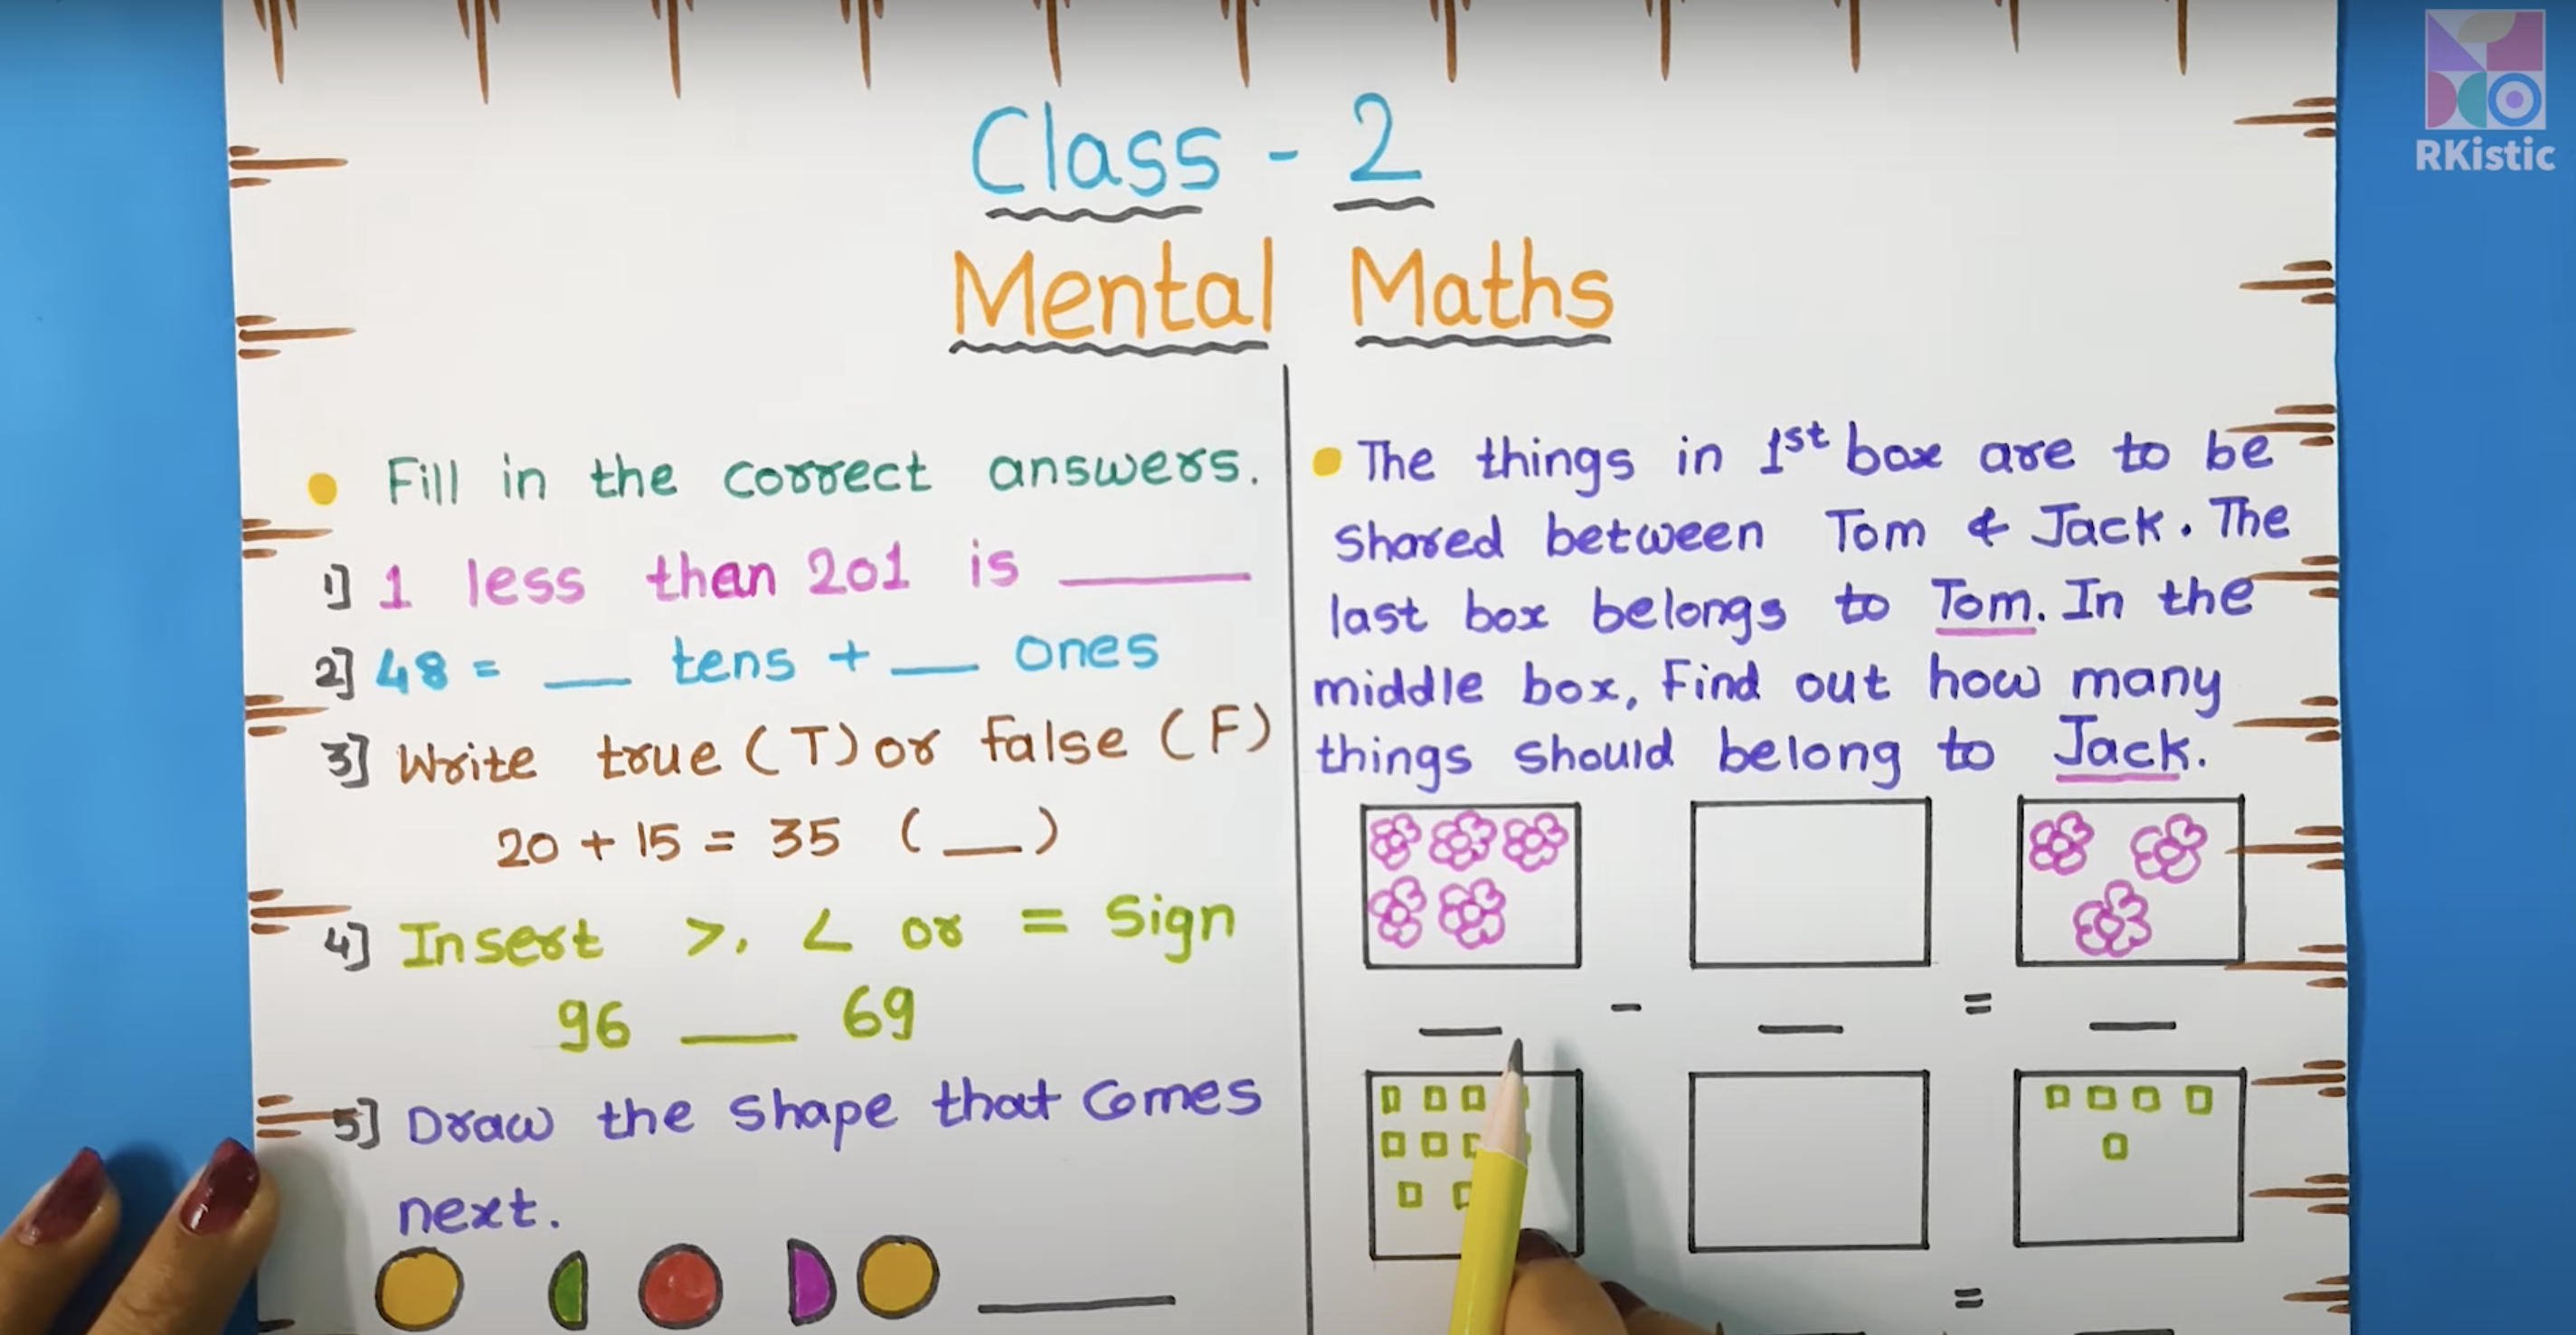 RKistic
Class - 2
Mental Maths
Fill in the correct answers.
1] 1 less than 201 is ____
2] 48 = __ tens + __ ones
3] Write true (T) or false (F)
20 + 15 = 35 (__)
4] Insert >, < or = Sign
96 ___ 69
5] Draw the shape that comes
next.
____
The things in 1st box are to be
shared between Tom & Jack. The
last box belongs to Tom. In the
middle box, Find out how many
things should belong to Jack.
__ - __ = __
=